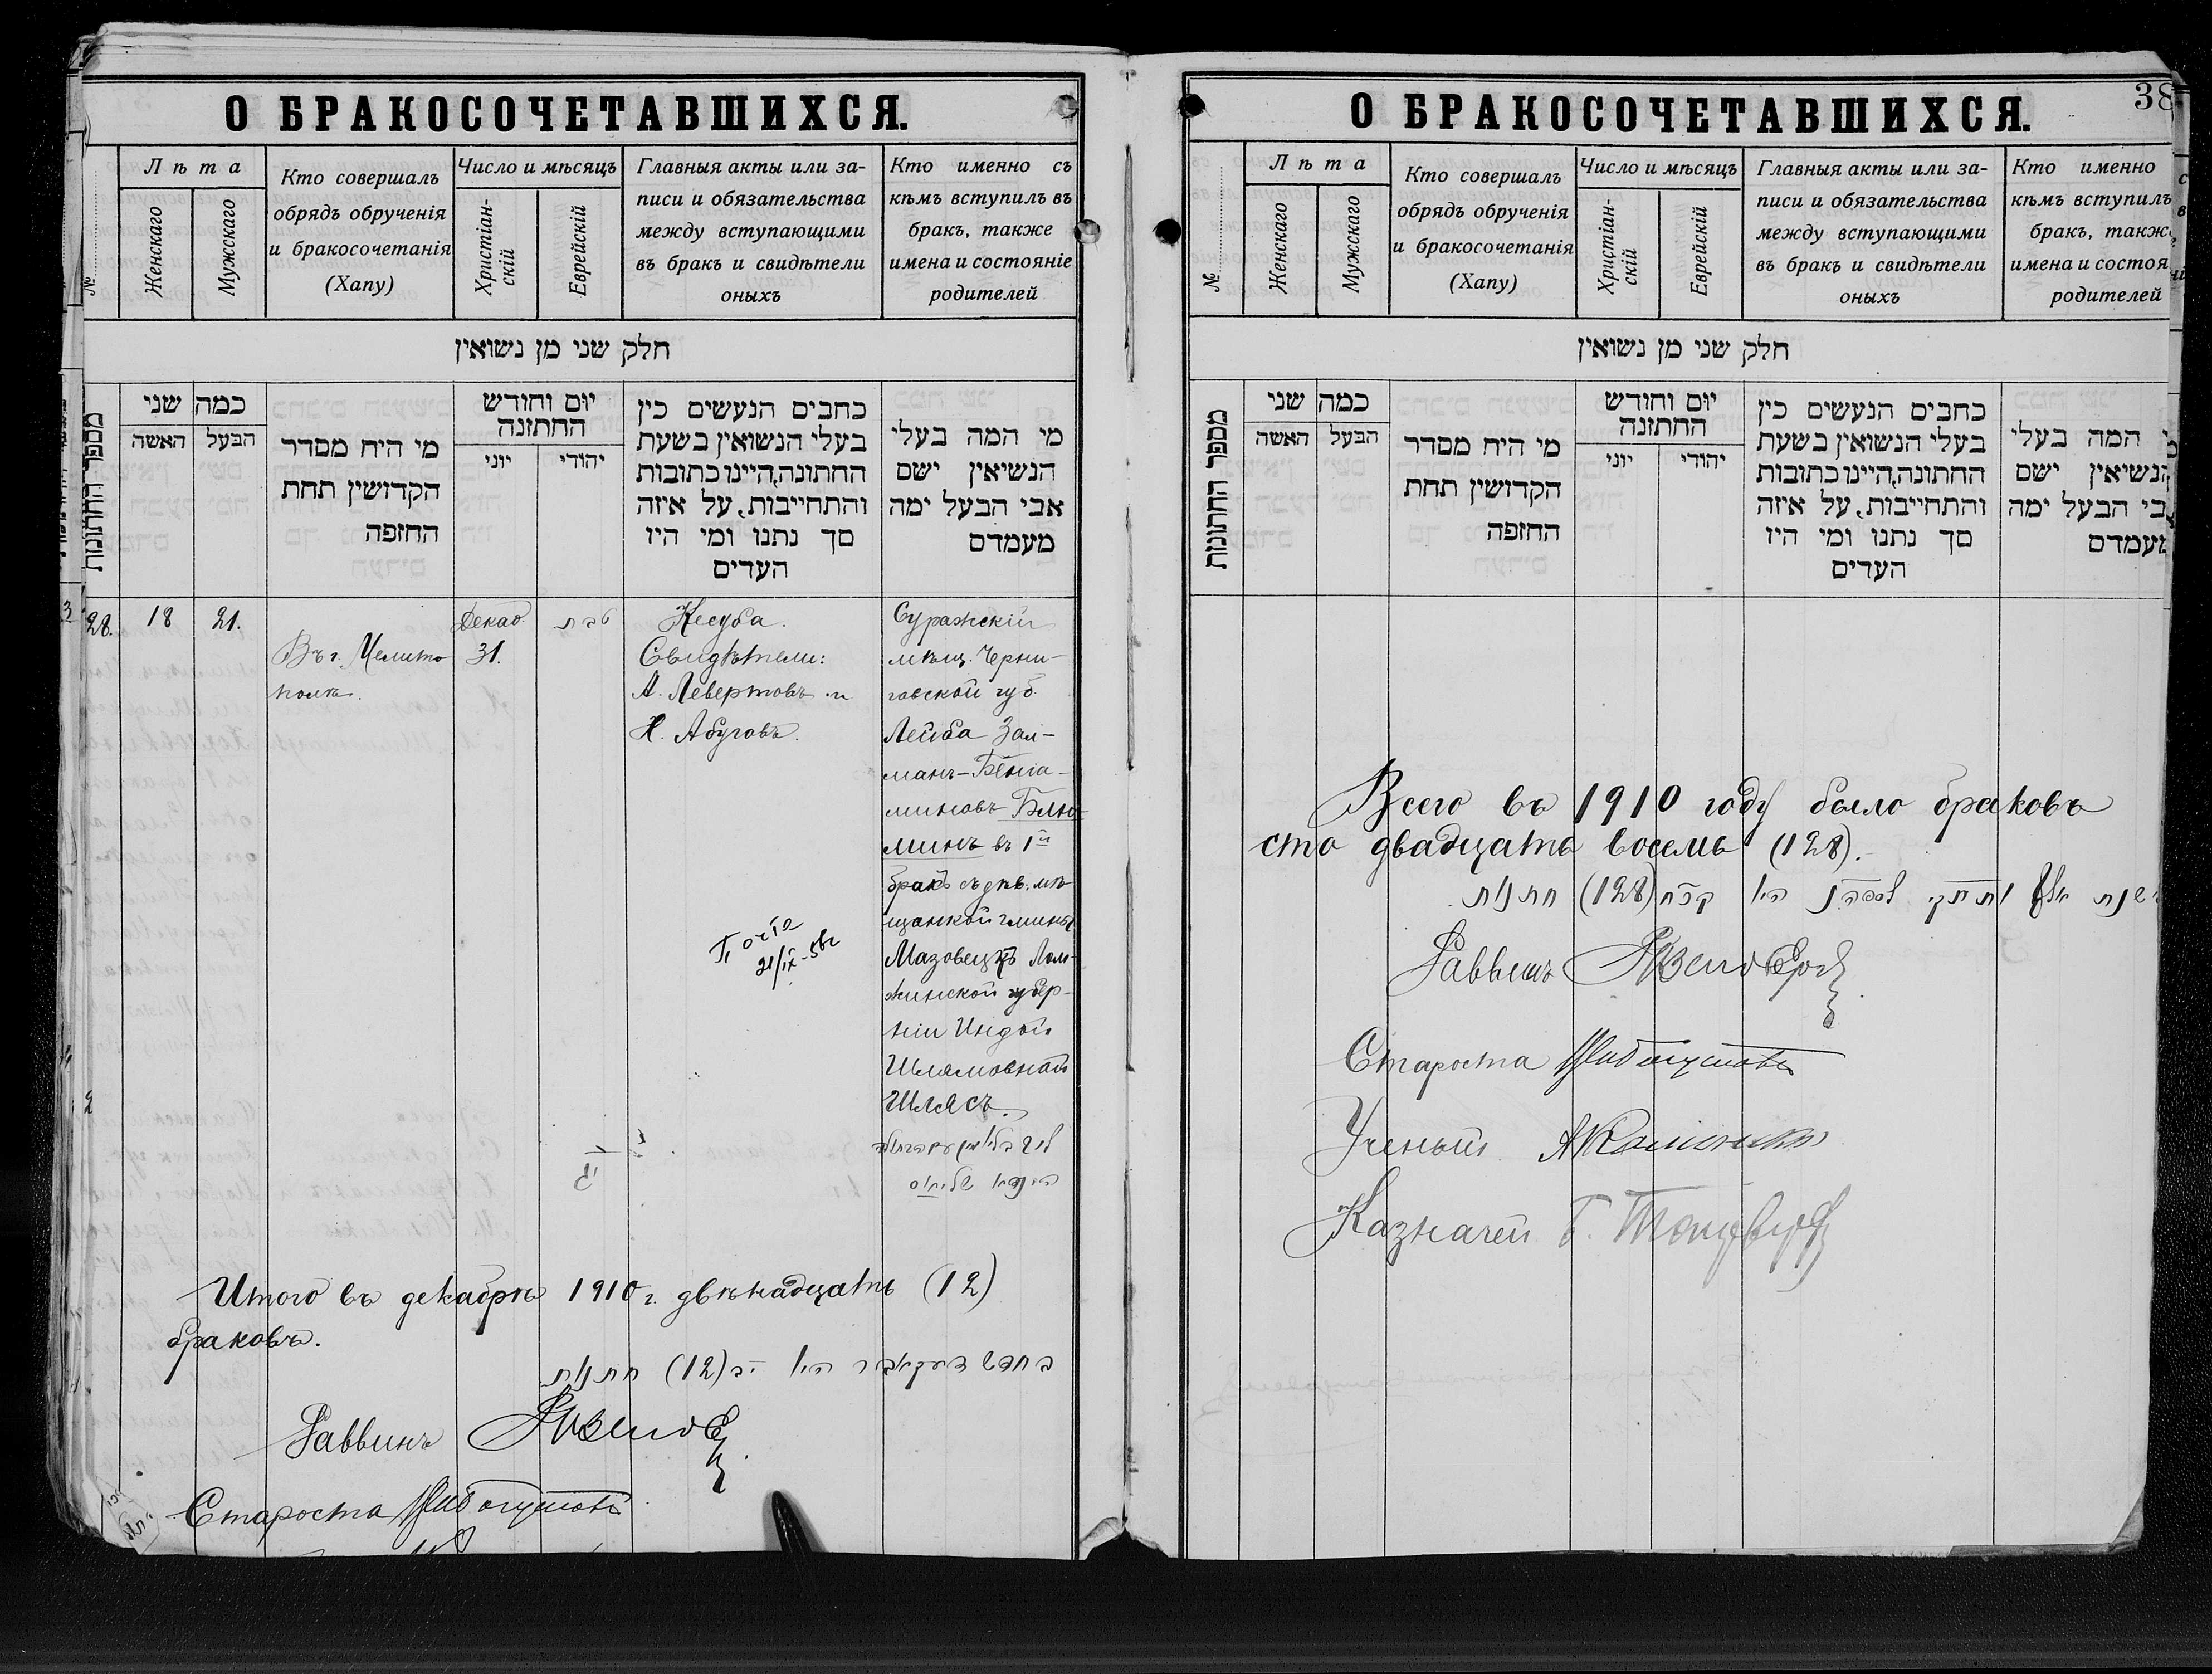 О БРАКОСОЧЕТАВШИХСЯ.
№
Лѣта
Женскаго
Мужскаго
Кто совершалъ
обрядъ обрученія
и бракосочетанія
(Хапу)
Число и мѣсяцъ
Христіан-
скій
Еврейскій
Главныя акты или за-
писи и обязательства
между вступающими
въ бракъ и свидѣтели
оныхъ
Кто именно съ
кѣмъ вступилъ въ
бракъ, также
имена и состояніе
родителей
חלק שני מן נשואין
מספר החתונות
כמה שני
האשה
הבעל
מי היח מסדר
הקדושין תחת
החזפה
יום וחודש
החתזנה
יוני
יהודי
כחבים הנעשים כין
בעלי הנשואין בשעת
החתונה,היינו כתובות
והתחייבות, על איזה
סך נתנו ומי היז
העדים
מי המה בעלי
הנשיאין ישם
אבי הבעל ימה
מעמדם
28.
18
21.
Въ г. Мелито
полѣ.
Декаб
31.
טבת
Кесуба.
Свидѣтели:
А. Левертовъ и
Х. Абуговъ.
Суражскій
мѣщ. Черни-
говской губ.
Лейба Зал-
манъ-Беніа-
миновъ Блю-
минъ въ 1й
бракъ съ дѣв. мѣ-
щанкой гмины
Мазовецкъ Лом-
жинской губер-
ніи Индой
Шлемовной
Шлясъ.
21/IX-58г
Итого въ декабрѣ 1910 г. двѣнадцать (12)
браковъ.
בחדש דעקאבר היו יב (12) חתנות
Раввинъ
Староста
О БРАКОСОЧЕТАВШИХСЯ.
38
№
Лѣта
Женскаго
Мужскаго
Кто совершалъ
обрядъ обрученія
и бракосочетанія
(Хапу)
Число и мѣсяцъ
Христіан-
скій
Еврейскій
Главныя акты или за-
писи и обязательства
между вступающими
въ бракъ и свидѣтели
оныхъ
Кто именно
кѣмъ вступилъ
бракъ, такж
имена и состоя
родителей
חלק שני מן נשואין
מספר החתונות
כמה שני
האשה
הבעל
מי היח מסדר
הקדושין תחת
החזפה
יום וחודש
החתזנה
יוני
יהודי
כחבים הנעשים כין
בעלי הנשואין בשעת
החתונה,היינו כתובות
והתחייבות, על איזה
סך נתנו ומי היז
העדים
המה בעלי
הנשיאין ישם
אבי הבעל ימה
מעמדם
Всего въ 1910 году было браковъ
сто двадцать восемь (128).
היו קכח (128) חתנות
Раввинъ
Староста
Ученый
Казначей